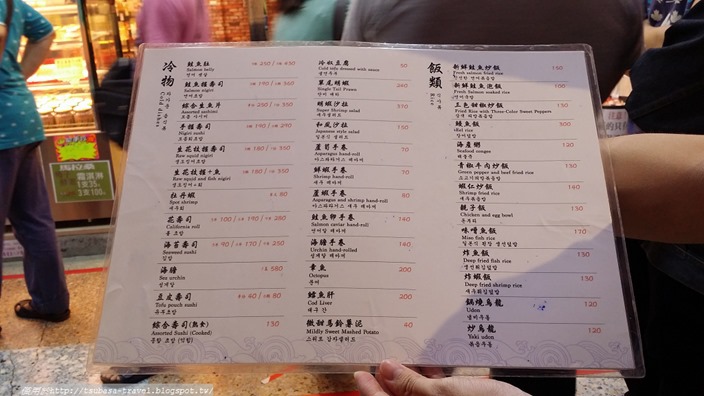 冷物
Cold dishes
鮭魚肚
Salmon belly
250
鮭魚握壽司
Salmon nigiri
190
360
綜合生魚片
Assorted sashimi
250
350
手握壽司
Nigiri sushi
190
290
生花枝握壽司
Raw squid nigiri
180
350
生花枝握+魚
Raw squid and fish nigiri
180
350
牡丹蝦
Spot shrimp
80
花壽司
California roll
100
190
280
海苔壽司
Seaweed sushi
김밥
90
170
250
海膽
Sea urchin
580
豆皮壽司
Tofu pouch sushi
유부초밥
40
80
綜合壽司(熟食)
Assorted Sushi (Cooked)
150
冷椒豆腐
Cold tofu dressed with sauce
50
單尾胡蝦
Single Tail Prawn
240
胡蝦沙拉
Super Shrimp salad
새우샐러드
370
和風沙拉
Japanese style salad
일본식 샐러드
160
蘆筍手卷
Asparagus hand-roll
70
鮮蝦手卷
Shrimp hand-roll
70
蘆蝦手卷
Asparagus and shrimp hand-roll
80
鮭魚卵手卷
Salmon caviar hand-roll
140
海膽手卷
Urchin handrolled
160
章魚
Octopus
문어
200
鱈魚肝
Cod Liver
대구 간
200
微甜馬鈴薯泥
Mildly Sweet Mashed Potato
40
飯類
Rice
新鮮鮭魚炒飯
Fresh salmon fried rice
150
新鮮鮭魚泡飯
Fresh Salmon soaked rice
150
三色甜椒炒飯
Fried Rice with Three-Color Sweet Peppers
120
鰻魚飯
300
海產粥
Seafood congee
120
青椒牛肉炒飯
Green pepper and beef fried rice
130
蝦仁炒飯
Shrimp fried rice
새우볶음밥
160
親子飯
Chicken and egg bowl
150
味噌魚飯
Miso fish rice
170
炸魚飯
Deep fried fish rice
120
炸蝦飯
Deep fried shrimp rice
150
鍋燒烏龍
Udon
120
炒烏龍
Yaki udon
볶음우동
120
馬拉桑
霜淇淋
1支35元
3支100元
http://tsubasa-travel.blogspot.tw/